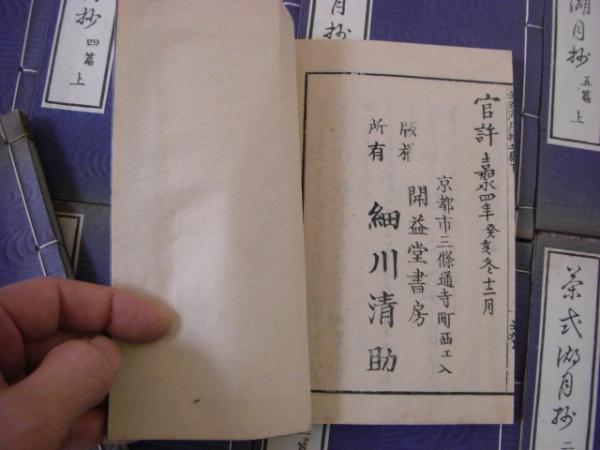 官許 嘉永四年癸亥冬十二月
京都市三條通寺町西エ入
開益堂書房
版権
所有
細川清助
抄 四篇 上
湖月抄 五篇 上
茶式湖月抄 二